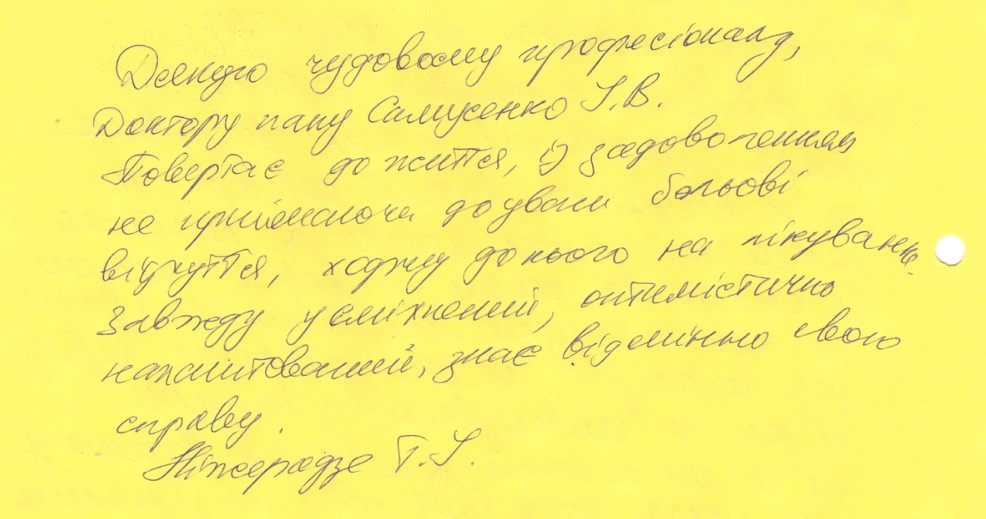 Дякую чудовому професіоналу,
Доктору пану Самусенко І.В.
Повертає до життя, із задоволенням
не приймаючи до уваги больові
відчуття, ходжу до нього на лікування.
Завжди усміхнений, оптимістично
налаштований, знає відмінно свою
справу.
Ніжерадзе Т.І.